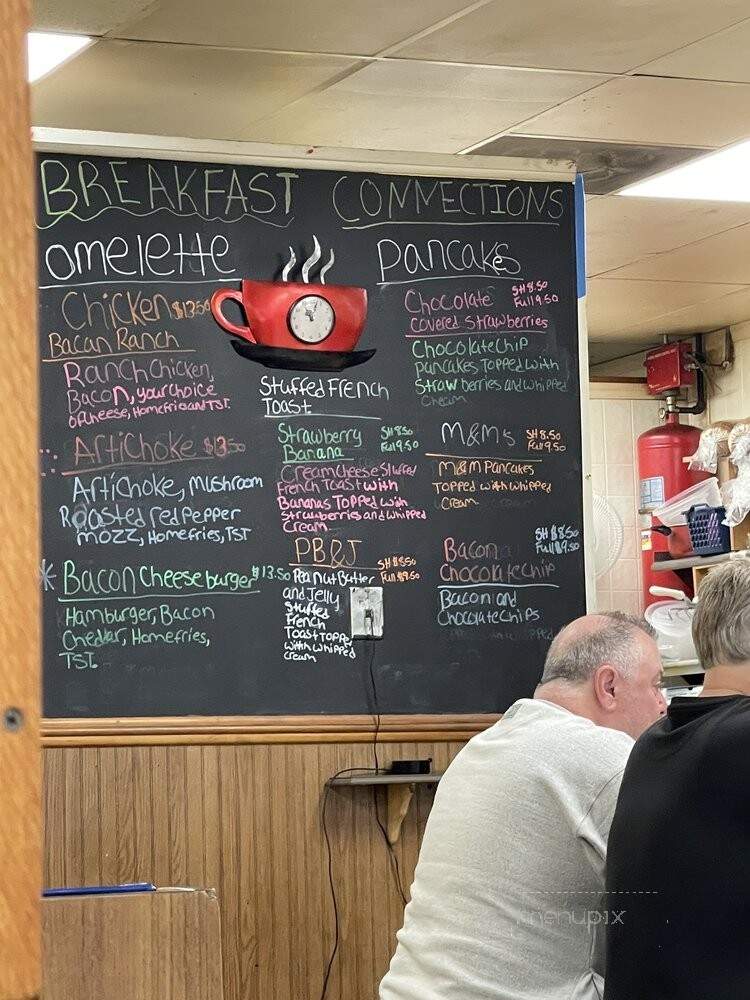 BREAKFAST CONNECTIONS
omelette
Chicken $13.50
Bacon Ranch
Ranch Chicken,
Bacon, your choice
of cheese, Homefries and TST.
ArtiChoke $13.50
Artichoke, Mushroom
Roasted red Pepper
mozz, Homefries, TST
* Bacon Cheeseburger $13.50
Hamburger, Bacon
Cheddar, Homefries,
TST.
Stuffed French
Toast
Strawberry SH 8.50
Banana Full 9.50
Creamcheese Stuffed
French Toast with
Bananas Topped with
Strawberries and whipped
Cream
PB&J SH $8.50
Full $9.50
Peanut Butter
and Jelly
Stuffed
French
Toast Topped
with whipped
cream
Pancakes
Chocolate SH 8.50
Full 9.50
covered strawberries
Chocolate Chip
pancakes Topped with
Strawberries and whipped
Cream
M&M's SH 8.50
Full 9.50
M&M Pancakes
Topped with whipped
Cream
Bacon SH $8.50
Full $9.50
Chocolate Chip
Bacon and
Chocolate Chips
menupix